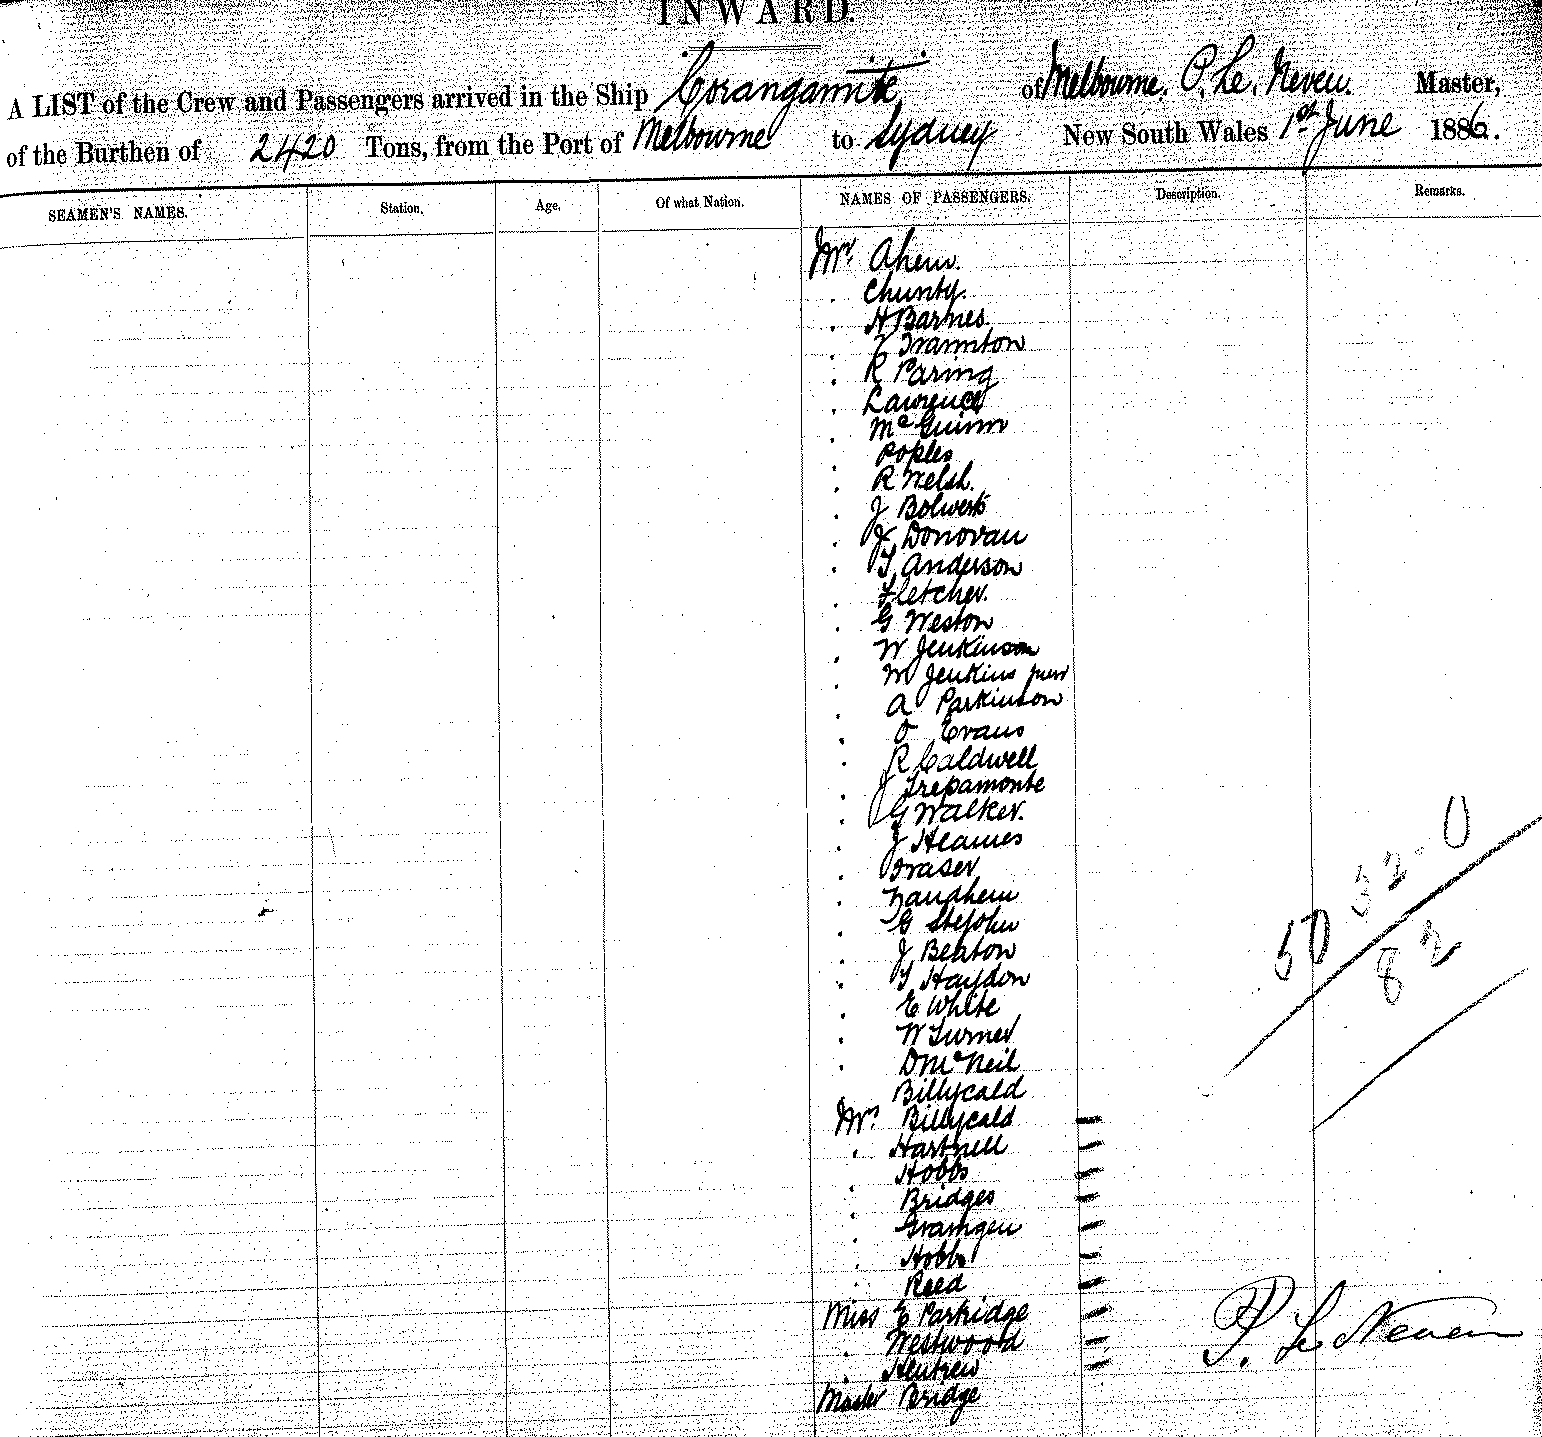 INWARD.
A LIST of the Crew and Passengers arrived in the Ship Corangamite of Melbourne. P. Le. Neveu. Master,
of the Burthen of 2420 Tons, from the Port of Melbourne to Sydney New South Wales 1st June 1886.
SEAMEN'S NAMES. Station. Age. Of what Nation. NAMES OF PASSENGERS. Description. Remarks.
Mr. Ahern.
. Chunty.
. H Barnes.
. Frannton
. R Paring
. Lawrence
. Mc Guinn
. Poples
. R Welsh.
. J Bolwerk
. J Donovan
. T Anderson
. Fletcher.
. G Weston
. W Jenkinson
. W Jenkins junr
. A Parkinson
. O Evans
. R Caldwell
. J Trepamonte
. G Walker.
. J Heames
. Fraser
.
. G StJohn
. J Beaton
. T Haydon
. E White
. W Turner
. D McNeil
Billycald
Mrs. Billycald
. Hartnell
. Hobbs
. Bridges
.
. Hobbs
. Reed
Miss E Partridge
. Westwood
.
Master Bridge
32-0
50
82
P. Le Neveu